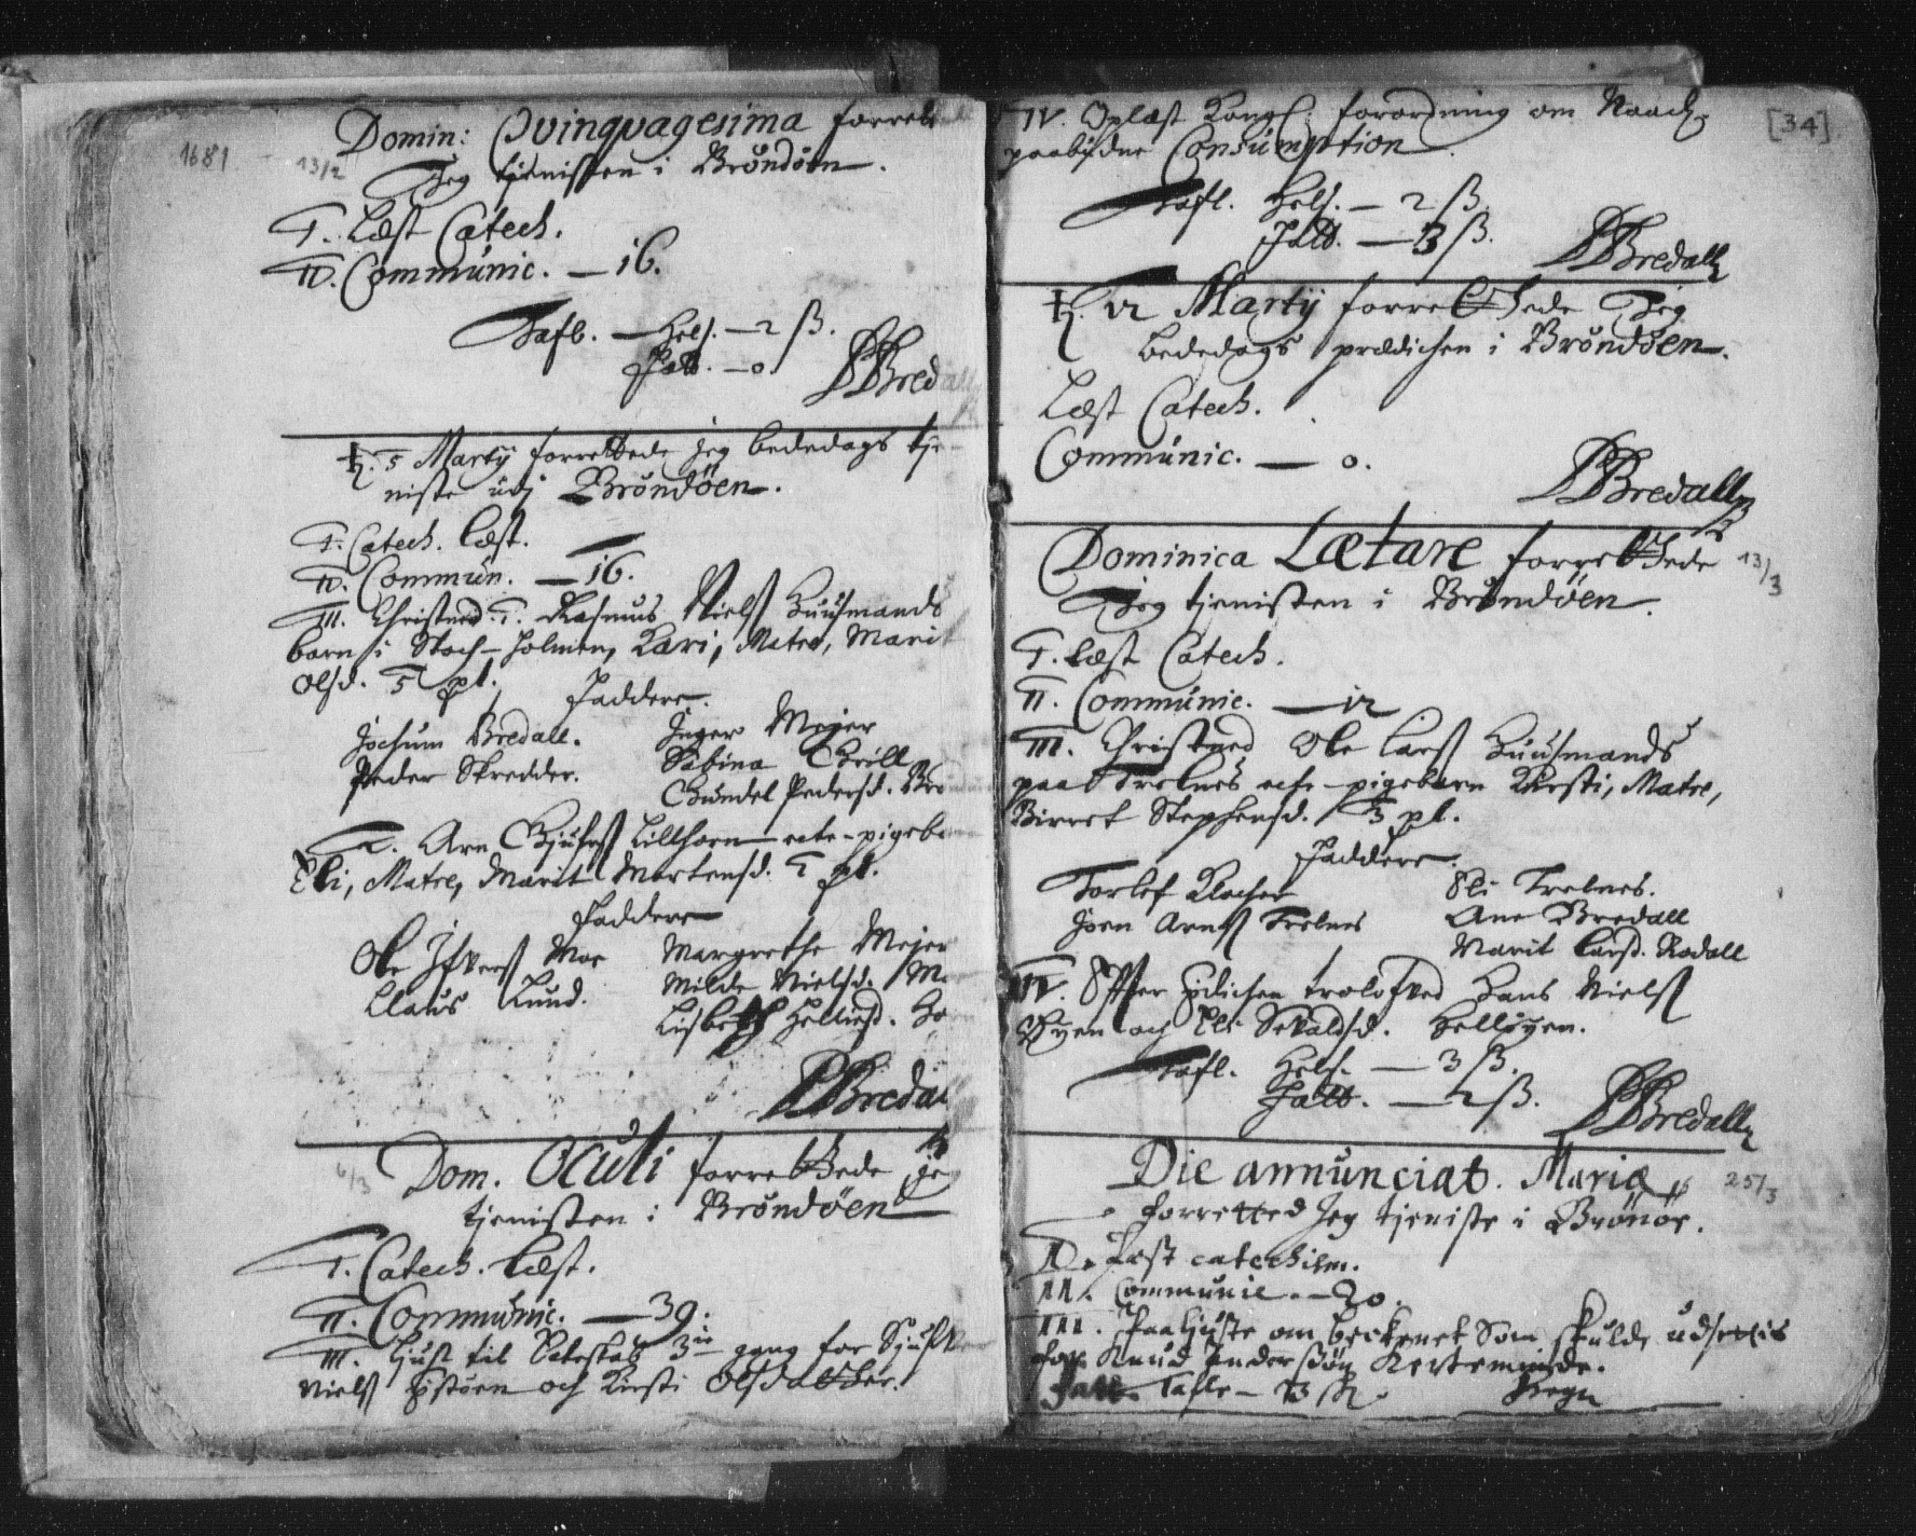 1681
13/2
Domin: Qvinqvagesima forret
Jeg tjenisten i Bröndöen.
I. Læst Catech.
II. Communic. — 16.
Tafl. — Hels. — 2 ß.
Fatt. — 0.
PBredall
♄. 5 Martij forrettede jeg bededags tje
niste udj Bröndöen.
I. Catech. læst.
II. Commun. — 16.
III. Christned. I. Rasmus Nielß Huusmands
barn i Stoch-holmen, Kari, Matre, Marit
Olsd. 5 pl.
Faddere.
Jochum Bredall.
Peder Skredder.
Inger Mejer
Sabina
Gundel Pedersd.
2. Arn Lillhorn ecte-pigeb
Eli, Matre, Marit Mortensd. 1 pl.
Faddere
Ole Ifverß Moe
Claus Lund.
Margrethe Mejer
Milde Nielsd. M
Lisbeth
PBredal
6/3
Dom. Oculi forrettede je
tjenisten i Bröndöen
I. Catech. læst.
II. Communic. — 39.
III. Liust til Echteskab 3die gang for
Nielß och Kirsti Olsdatter.
[34]
IV. Oplæst Kongl. forordning om Naad.
paabudne Consumption.
Tafl. Hels. — 2 ß.
Fatt. — 3 ß.
PBredall
♄. 12 Martij forrettede Jeg
bededags prædichen i Bröndöen.
Læst Catech.
Communic. — 0.
PBredall
Dominica Lætare forrettede
13/3
Jeg tjenisten i Bröndöen.
I. læst Catech.
II. Communic. — 12
III. Christned Ole Larß Huusmands
paa Trelnes echte-pigebarn Kirsti, Matre,
Birret Stephensd. 3 pl.
Faddere.
Torlef
Joen Arnß Trelnes
Eli Trelnes.
Ane Bredall
Marit Larsd. Rodall
IV. Efter prædichen trolofved Hans Nielß
och Eli Sevaldsd.
Tafl. Hels. — 3 ß.
Fatt. — 2 ß.
PBredall
Die annunciat. Mariæ
25/3
forretted Jeg tjeniste i Brönöe.
I. Læst catechism.
II. Communic. — 20.
III. om som skulde udsettis
for Knud Anderßön
Fatt. Tafle — 3 ß.